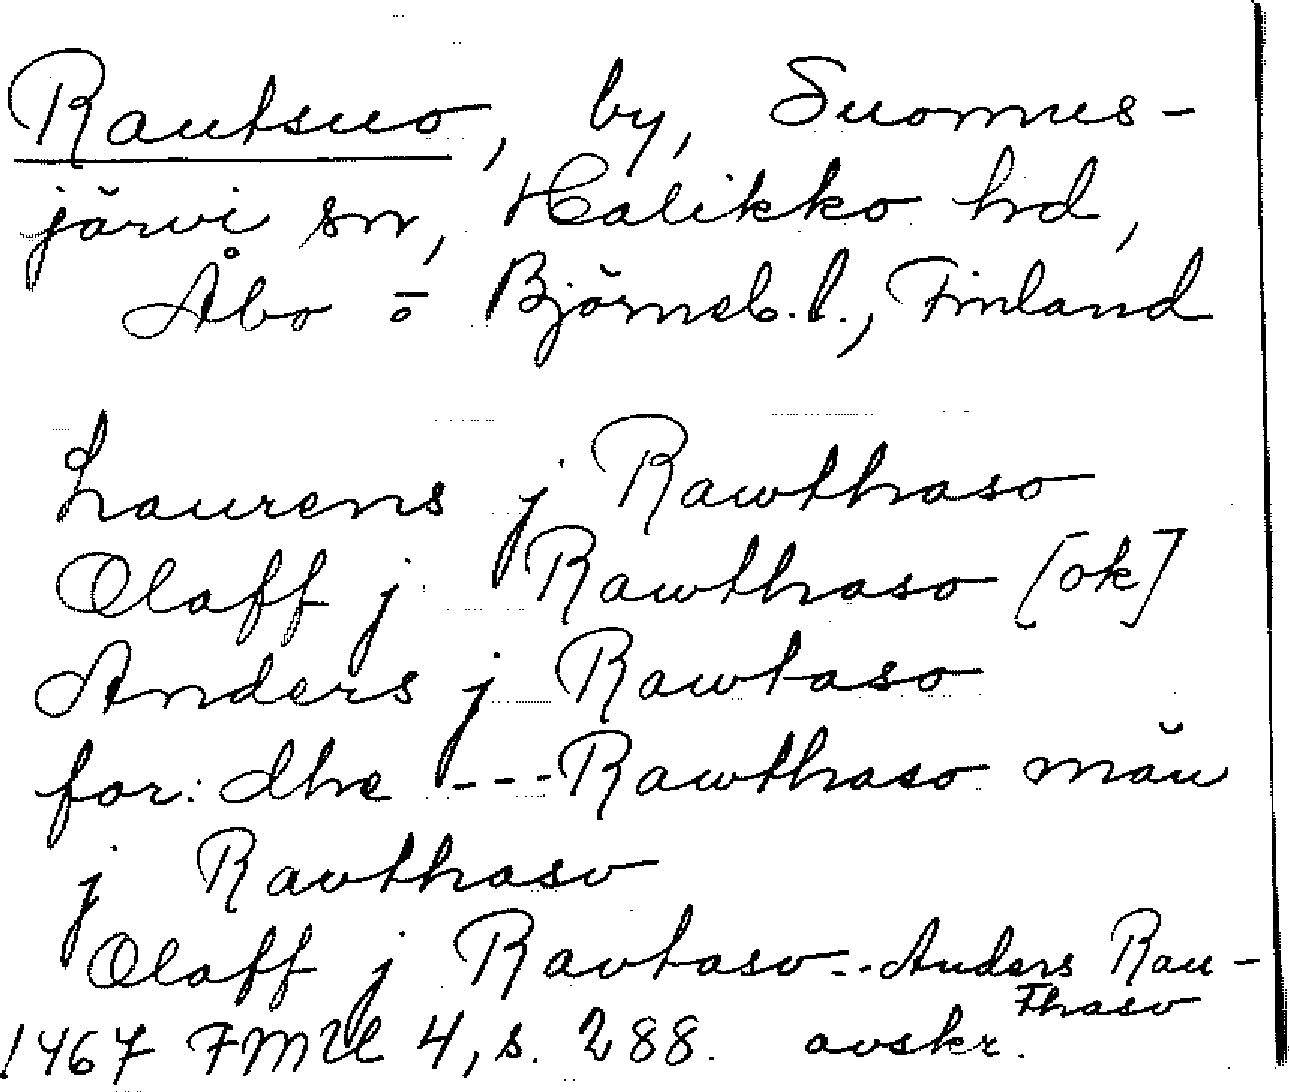 Rautsuo, by, Suomus-
järvi sn, Halikko hd,
Åbo o Björneb. l., Finland
Laurens j Rawthaso
Olaff j Rawthaso [ok]
Anders j Rawtaso
for: dhe --- Rawthaso män
j Ravthaso
Olaff j Ravtaso -- Anders Rau-
thaso
1467 FMU 4, s. 288. avskr.